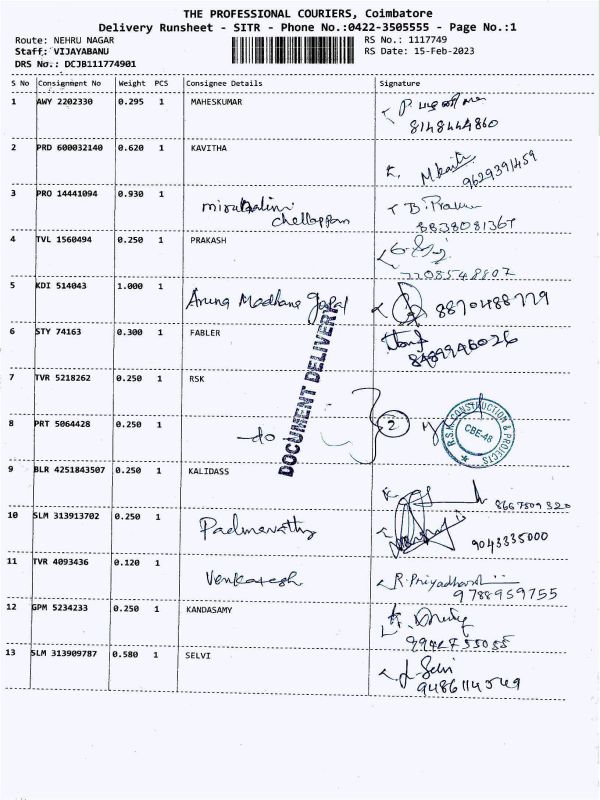 THE PROFESSIONAL COURIERS, Coimbatore
Delivery Runsheet - SITR - Phone No.:0422-3505555 - Page No.:1
Route: NEHRU NAGAR RS No.: 1117749
Staff: VIJAYABANU RS Date: 15-Feb-2023
DRS No.: DCJB111774901
S No Consignment No Weight PCS Consignee Details Signature
1 AWY 2202330 0.295 1 MAHESKUMAR
8148444860
2 PRD 600032140 0.620 1 KAVITHA
9629391459
3 PRO 14441094 0.930 1 chellappan B. Pravee
8838081367
4 TVL 1560494 0.250 1 PRAKASH
7708548807
5 KDI 514043 1.000 1 Aruna Madhana Gopal 8870488779
6 STY 74163 0.300 1 FABLER
8489946026
DOCUMENT DELIVERY
7 TVR 5218262 0.250 1 RSK
8 PRT 5064428 0.250 1 -do 2
R.S.K CONSTRUCTION & PROJECTS
CBE-48
9 BLR 4251843507 0.250 1 KALIDASS
8667509320
10 SLM 313913702 0.250 1 Padmavathy
9043335000
11 TVR 4093436 0.120 1 Venkatesh R. Priyadharshini
9788959755
12 GPM 5234233 0.250 1 KANDASAMY
13 SLM 313909787 0.580 1 SELVI Selvi
9486114549